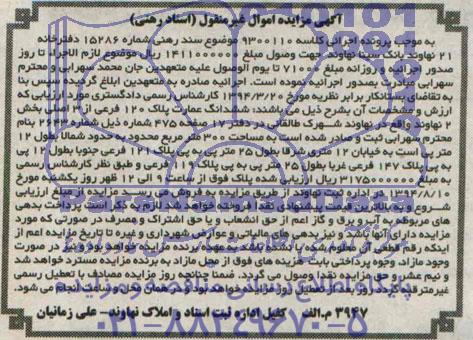 آگهی مزایده اموال غیر منقول (اسناد رهنی)
به موجب پرونده اجرائی کلاسه ۹۳۰۰۱۱۰ موضوع سند رهنی شماره ۱۵۲۸۶ دفترخانه
۲۱ نهاوند بانک سینا نهاوند جهت وصول مبلغ ریال موضوع لازم الاجراء تا روز
صدور اجرائیه و روزانه مبلغ تا یوم الوصول علیه متعهدین جان محمد سهرابی و محترم
سهرابی مبادرت بصدور اجرائیه نموده است. اجرائیه صادره به متعهدین ابلاغ گردیده سپس بنا
به تقاضای بستانکار برابر نظریه مورخ ۱۳۹۴/۳/۲۰ کارشناس رسمی دادگستری مورد ارزیابی که
ارزش و مشخصات آن بشرح ذیل می باشند: ششدانگ عمارت پلاک ۱۲۰ فرعی از ۲ اصلی بخش
۲ نهاوند واقع در نهاوند شهرک طالقانی در دفتر ۱۷ صفحه ۴۷۵ شماره ذیل شماره ۲۶۴۳ بنام
محترم سهرابی ثبت و صادر شده است به مساحت ۳۰۰ متر مربع محدود به حدود شمالا بطول ۱۲
متر پی است به خیابان ۱۲ متری شرقا بطول ۲۵ متر پی به پی پلاک ۱۲۱ فرعی جنوبا بطول ۱۲ پی
به پی پلاک ۱۴۷ فرعی غربا بطول ۲۵ متر پی به پی پلاک ۱۱۹ فرعی و طبق نظر کارشناس رسمی
به مبلغ ریال ارزیابی شده پلاک فوق از ساعت ۹ الی ۱۲ ظهر روز یکشنبه مورخ
۱۳۹۴/۸/۱۰ در اداره ثبت نهاوند از طریق مزایده به فروش می رسد مزایده از مبلغ ارزیابی
شروع و به بالاترین قیمت پیشنهادی نقدا فروخته خواهد شد لازم به ذکر است پرداخت بدهی
های مربوطه به آب و برق و گاز اعم از حق انشعاب و یا حق اشتراک و مصرف در صورتی که مورد
مزایده دارای آنها باشد و نیز بدهی های مالیاتی و عوارض شهرداری و غیره تا تاریخ مزایده اعم از
اینکه رقم قطعی آن معلوم شده یا نشده باشد به عهده برنده مزایده خواهد بود و نیز در صورت
وجود مازاد وجوه پرداختی بابت هزینه های فوق از محل مازاد به برنده مزایده مسترد خواهد شد
و نیم عشر و حق مزایده نقدا وصول می گردد. ضمنا چنانچه روز مزایده مصادف با تعطیل رسمی
غیر مترقبه گردد روز بعد از تعطیل روز مزایده خواهد بود و در همان محل و ساعت انجام می شود.
۳۹۴۷ م.الف کفیل اداره ثبت اسناد و املاک نهاوند – علی زمانیان
۰۲۱-۸۸۳۴۹۶۷۰-۵